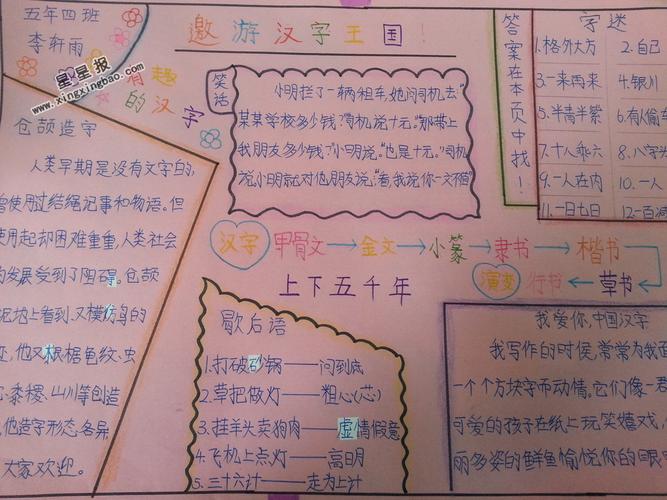 五年四班
李轩雨
星星报
www.xingxingbao.com
有趣
的汉字
邀游汉字王国!
仓颉造字
人类早期是没有文字的,
曾使用过结绳记事和物语。但
使用起却困难重重,人类社会
的发展受到了阻碍。仓颉
泥地上看到、又模仿鸟的
迹,他又根据龟纹、虫
、黍稷、山川等创造
他造字形态各异
大家欢迎。
笑话
小明拦了一辆租车,她问司机去"
某某学校多少钱?司机说十元。"那带上
我朋友多少钱?"小明说。"也是十元。"司机
说,小明就对他朋友说,"看,我说你一文不值
答案在本页中找!
字迷
1.格外大方
2.自己
3.一来再来
4.银川
5.半青半紫
6.有人偷车
7.十人乘六
8.八字头
9.一人在内
10.一人
11.一日七日
12.百减
汉字
甲骨文→金文→小篆→隶书→楷书
演变
行书←草书
上下五千年
歇后语
1.打破砂锅——问到底
2.草把做灯——粗心(芯)
3.挂羊头卖狗肉——虚情假意
4.飞机上点灯——高明
5.三十六计——走为上计
我爱你,中国汉字
我写作的时侯,常常为我面
一个个方块字而动情。它们像一
可爱的孩子在纸上玩笑嬉戏,
丽多姿的鲜鱼愉悦你的眼